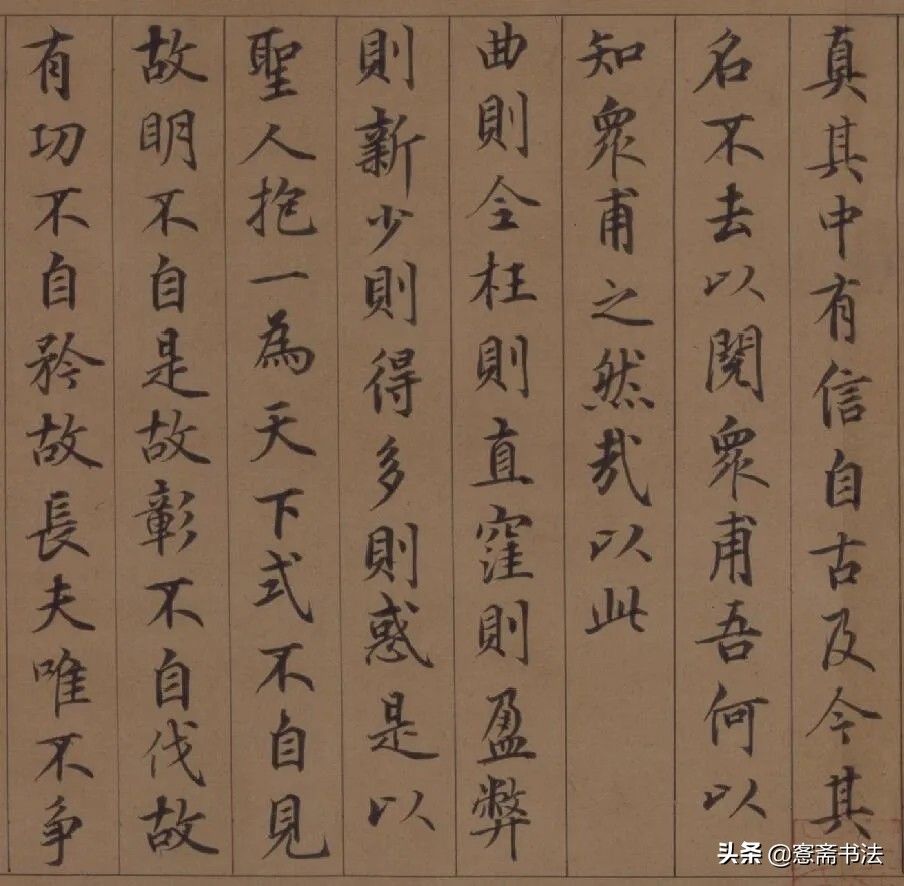 真其中有信自古及今其
名不去以閱衆甫吾何以
知衆甫之然哉以此
曲則全枉則直窪則盈弊
則新少則得多則惑是以
聖人抱一為天下式不自見
故明不自是故彰不自伐故
有功不自矜故長夫唯不争
头条@愙斋书法